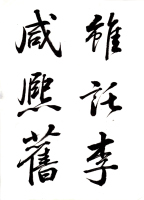 雖託李
咸熙舊